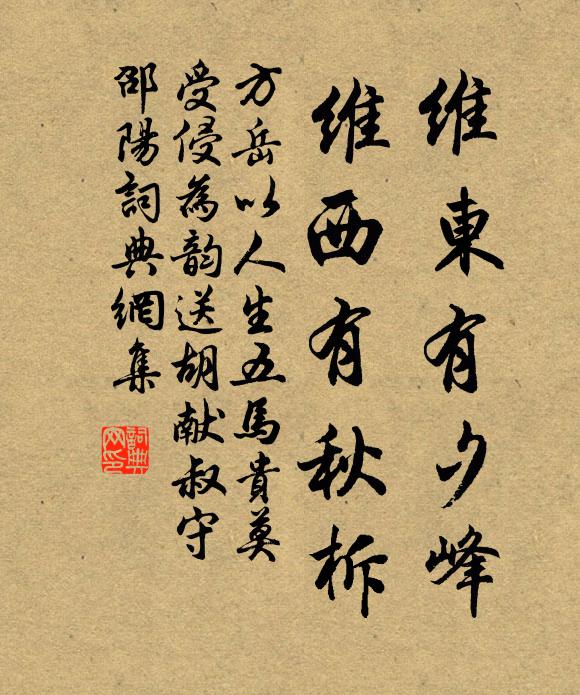 維東有夕峰
維西有秋柝
方岳以人生五馬貴莫
受侵為韵送胡献叔守
邵陽詞典網集
詞典
网印